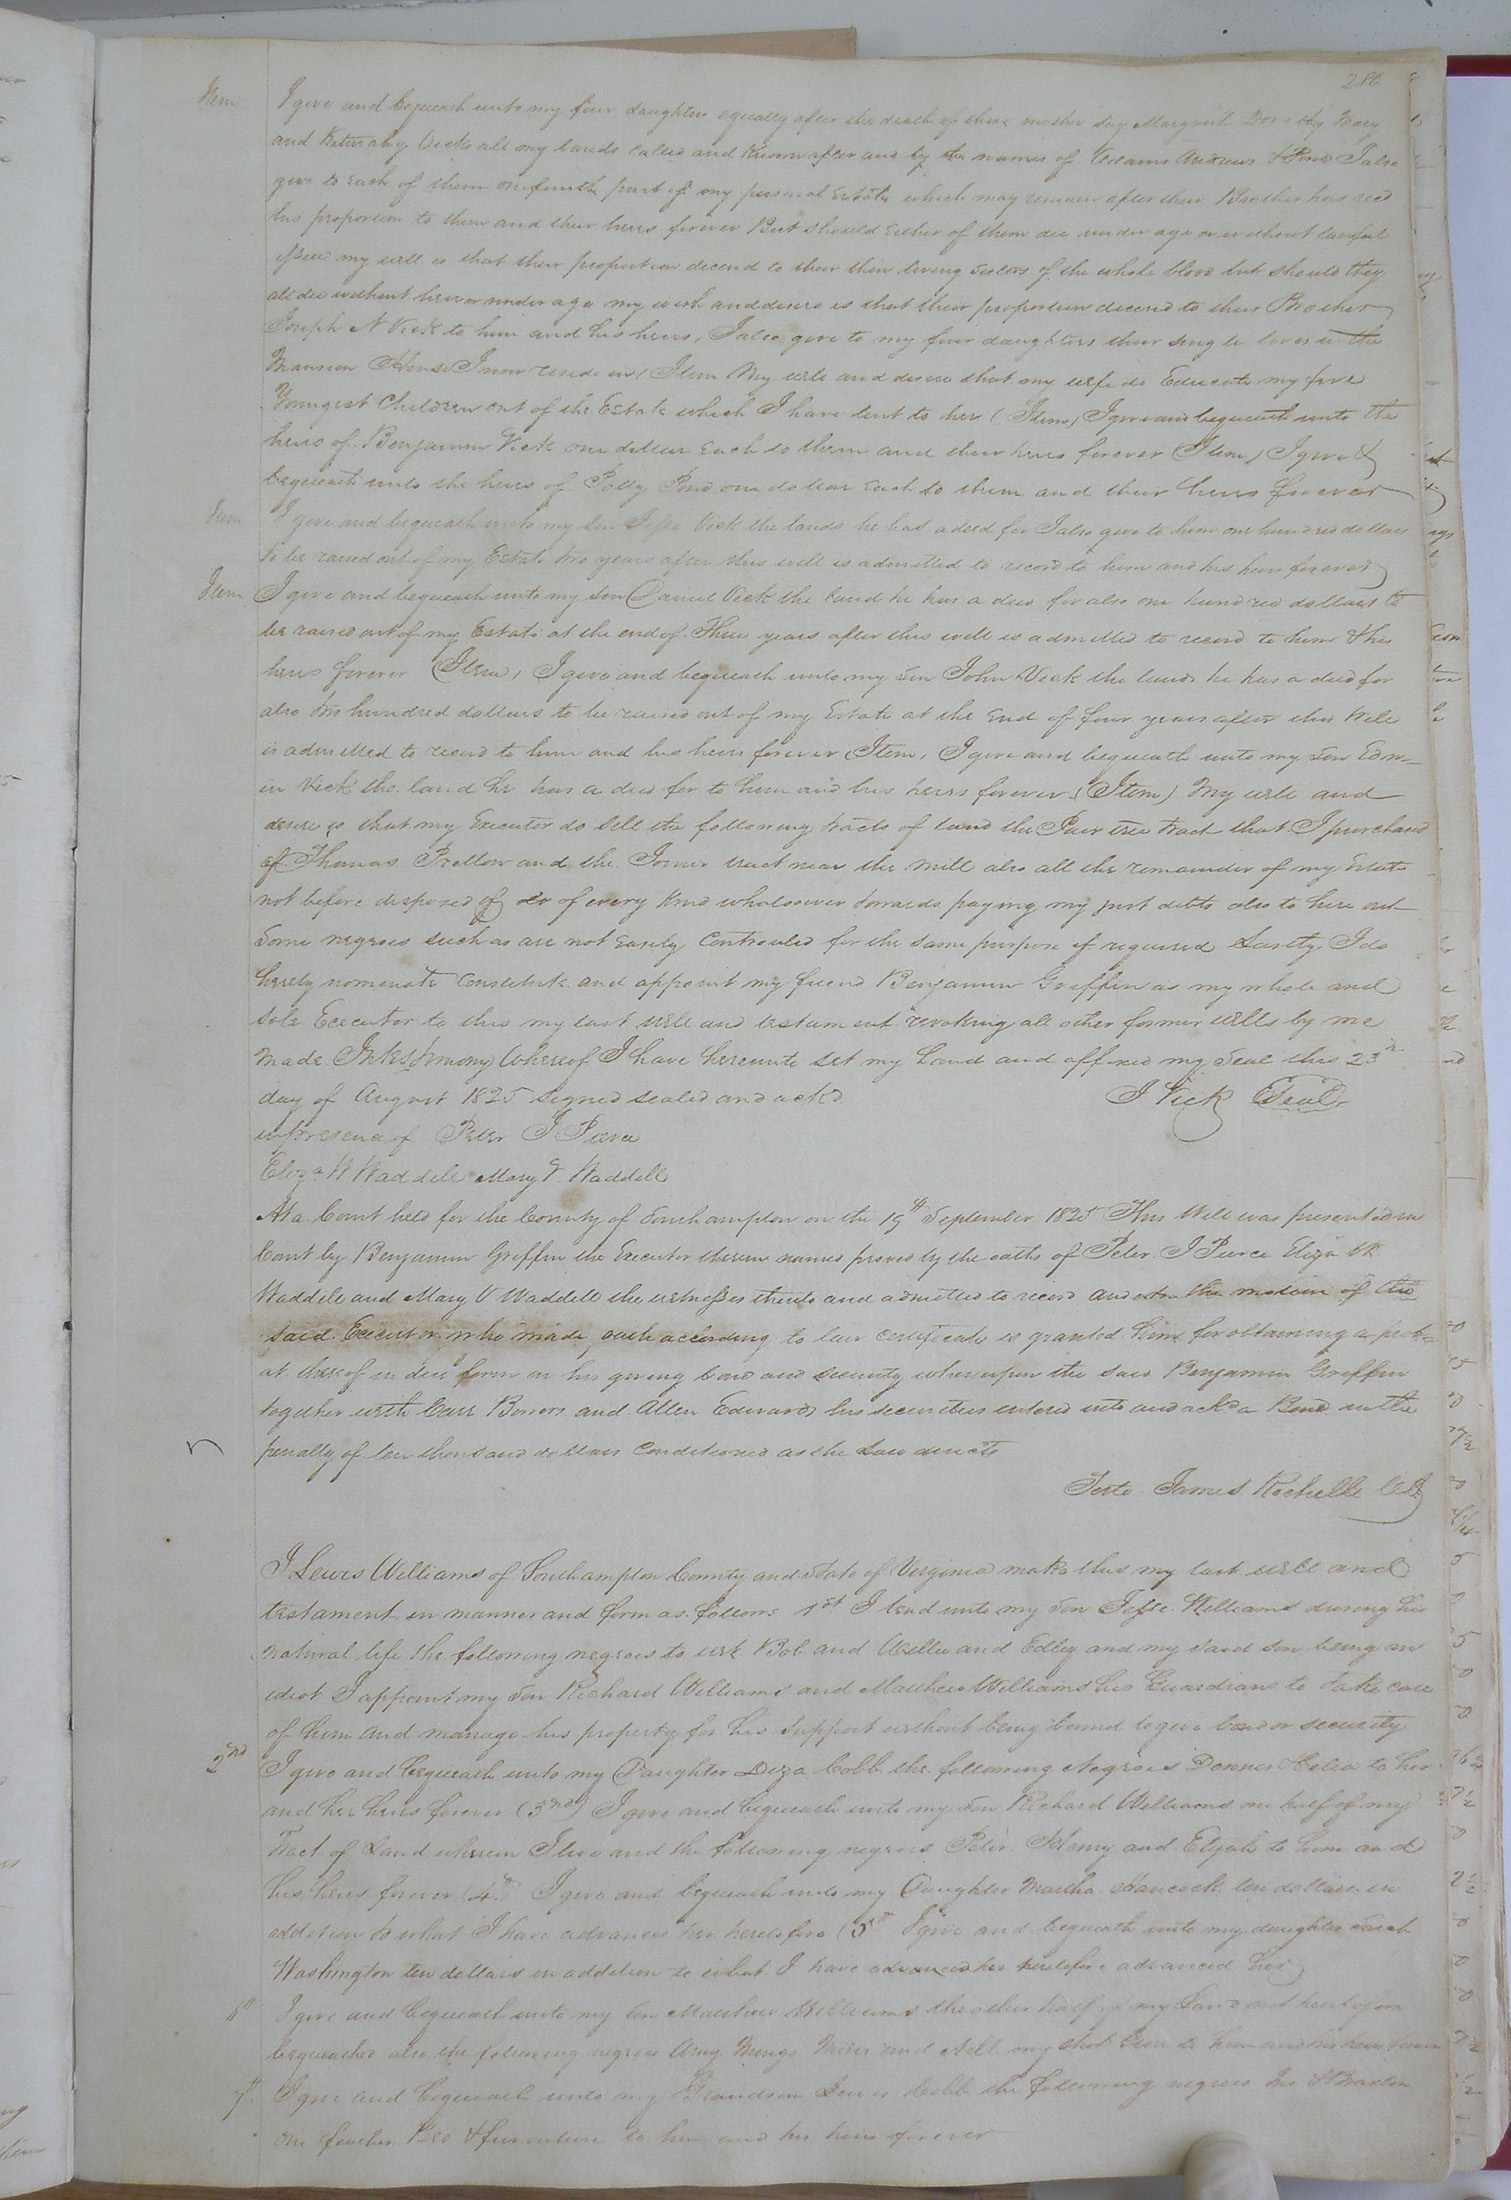 280
Item I give and bequeath unto my four daughters equally after the death of there mother say Margarit Dorothy Mary
and Keturahy Vick all my lands called and known after and by the names of Adams Andrews & Pond I also
give to Each of them one fourth part of my personal Estate which may remain after their Brother has recd
his proportion to them and their heirs forever But should Either of them die under age or without lawful
issue my will is that their proportion decend to their then living sisters of the whole blood but should they
all die without heir or under age my wish and desire is that their proportion decend to their Brother
Joseph A Vick to him and his heirs, I also give to my four daughters their single lives in the
Mansion House I now reside in, Item My will and desire that my wife do Educate my five
Youngest Children out of the Estate which I have lent to her (Item) I give and bequeath unto the
heirs of Benjamin Vick one dollar Each to them and their heirs forever Item) I give &
bequeath unto the heirs of Polly Pond one dollar Each to them and their heirs forever
Item I give and bequeath unto my son Jesse Vick the lands he has a deed for I also give to him one hundred dollars
to be raised out of my Estate two years after this will is admitted to record to him and his heirs forever
Item I give and bequeath unto my son Daniel Vick the land he has a deed for also one hundred dollars to
be raised out of my Estate at the end of Three years after this will is admitted to record to him & his
heirs forever (Item, I give and bequeath unto my son John Vick the lands he has a deed for
also two hundred dollars to be raised out of my Estate at the End of four years after this Will
is admitted to record to him and his heirs forever Item, I give and bequeath unto my son Edw-
in Vick the land he has a deed for to him and his heirs forever, (Item) My will and
desire is that my Executor do sell the following tracts of land the tree tract that I purchased
of Thomas Pretlow and the tract near the mill also all the remainder of my Estate
not before disposed of of every kind whatsoever towards paying my just debts also to hire out
some negroes such as are not easily controuled for the same purpose if required Lastly I do
hereby nominate constitute and appoint my friend Benjamin Griffin as my whole and
sole Executor to this my last will and testament revoking all other former wills by me
made In testimony Whereof I have hereunto set my hand and affixed my seal this 23rd
day of August 1825 signed sealed and ackd J Vick Seal
in presence of Peter J Pierce
Eliza W Waddell Mary V Waddell
At a Court held for the County of Southampton on the 19th September 1825 This Will was presented in
Court by Benjamin Griffin the Executor therein named proved by the oaths of Peter J Pierce Eliza W
Waddell and Mary V Waddell the witnesses thereto and admitted to record and on the motion of the
said Executor who made oath according to law certificate is granted him for obtaining a prob-
at thereof in due form on his giving bond and security whereupon the said Benjamin Griffin
together with Carr Bowers and Allen Edwards his securities entered into and ackd a Bond in the
penalty of ten thousand dollars conditioned as the Law directs
Teste James Rochelle Clk
I Lewis Williams of Southampton County and State of Virginia make this my last will and
testament in manner and form as follows 1st I lend unto my son Jesse Williams during his
natural life the following negroes to wit Bob and Willie and Edley and my said son being an
idiot I appoint my son Richard Williams and Matthew Williams his Guardians to take care
of him and manage his property for his support without being bound to give bond or security
2nd I give and bequeath unto my Daughter Diza Cobb the following Negroes Donnor to her
and her heirs forever (3rd) I give and bequeath unto my son Richard Williams one half of my
Tract of Land wherein I live and the following negroes Peter Henry and Elijah to him and
his heirs forever (4th) I give and bequeath unto my Daughter Martha Hancock ten dollars in
addition to what I have advanced her heretofore (5th I give and bequeath unto my daughter Sarah
Washington ten dollars in addition to what I have advanced her heretofore advanced her
6th I give and bequeath unto my son Matthew Williams the other half of my Land not heretofore
bequeathed also the following negroes Amy Mingo and Nell my shot Gun to him and his heirs forever
7th I give and bequeath unto my Grandson Lewis Cobb the following negroes & Braxton
one feather Bed & furniture to him and his heirs forever